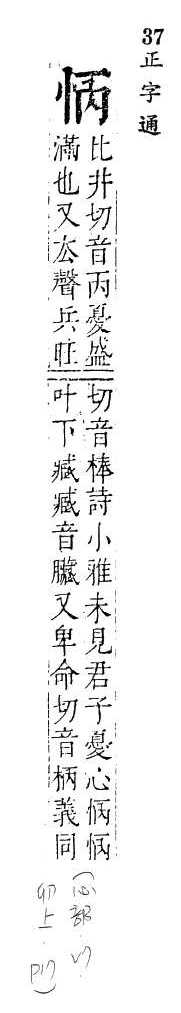 37
正字通
怲
比井切音丙憂盛
滿也又厺聲兵旺
切音棒詩小雅未見君子憂心怲怲
叶下臧臧音臟又卑命切音柄義同
(心部
卯上·P17)